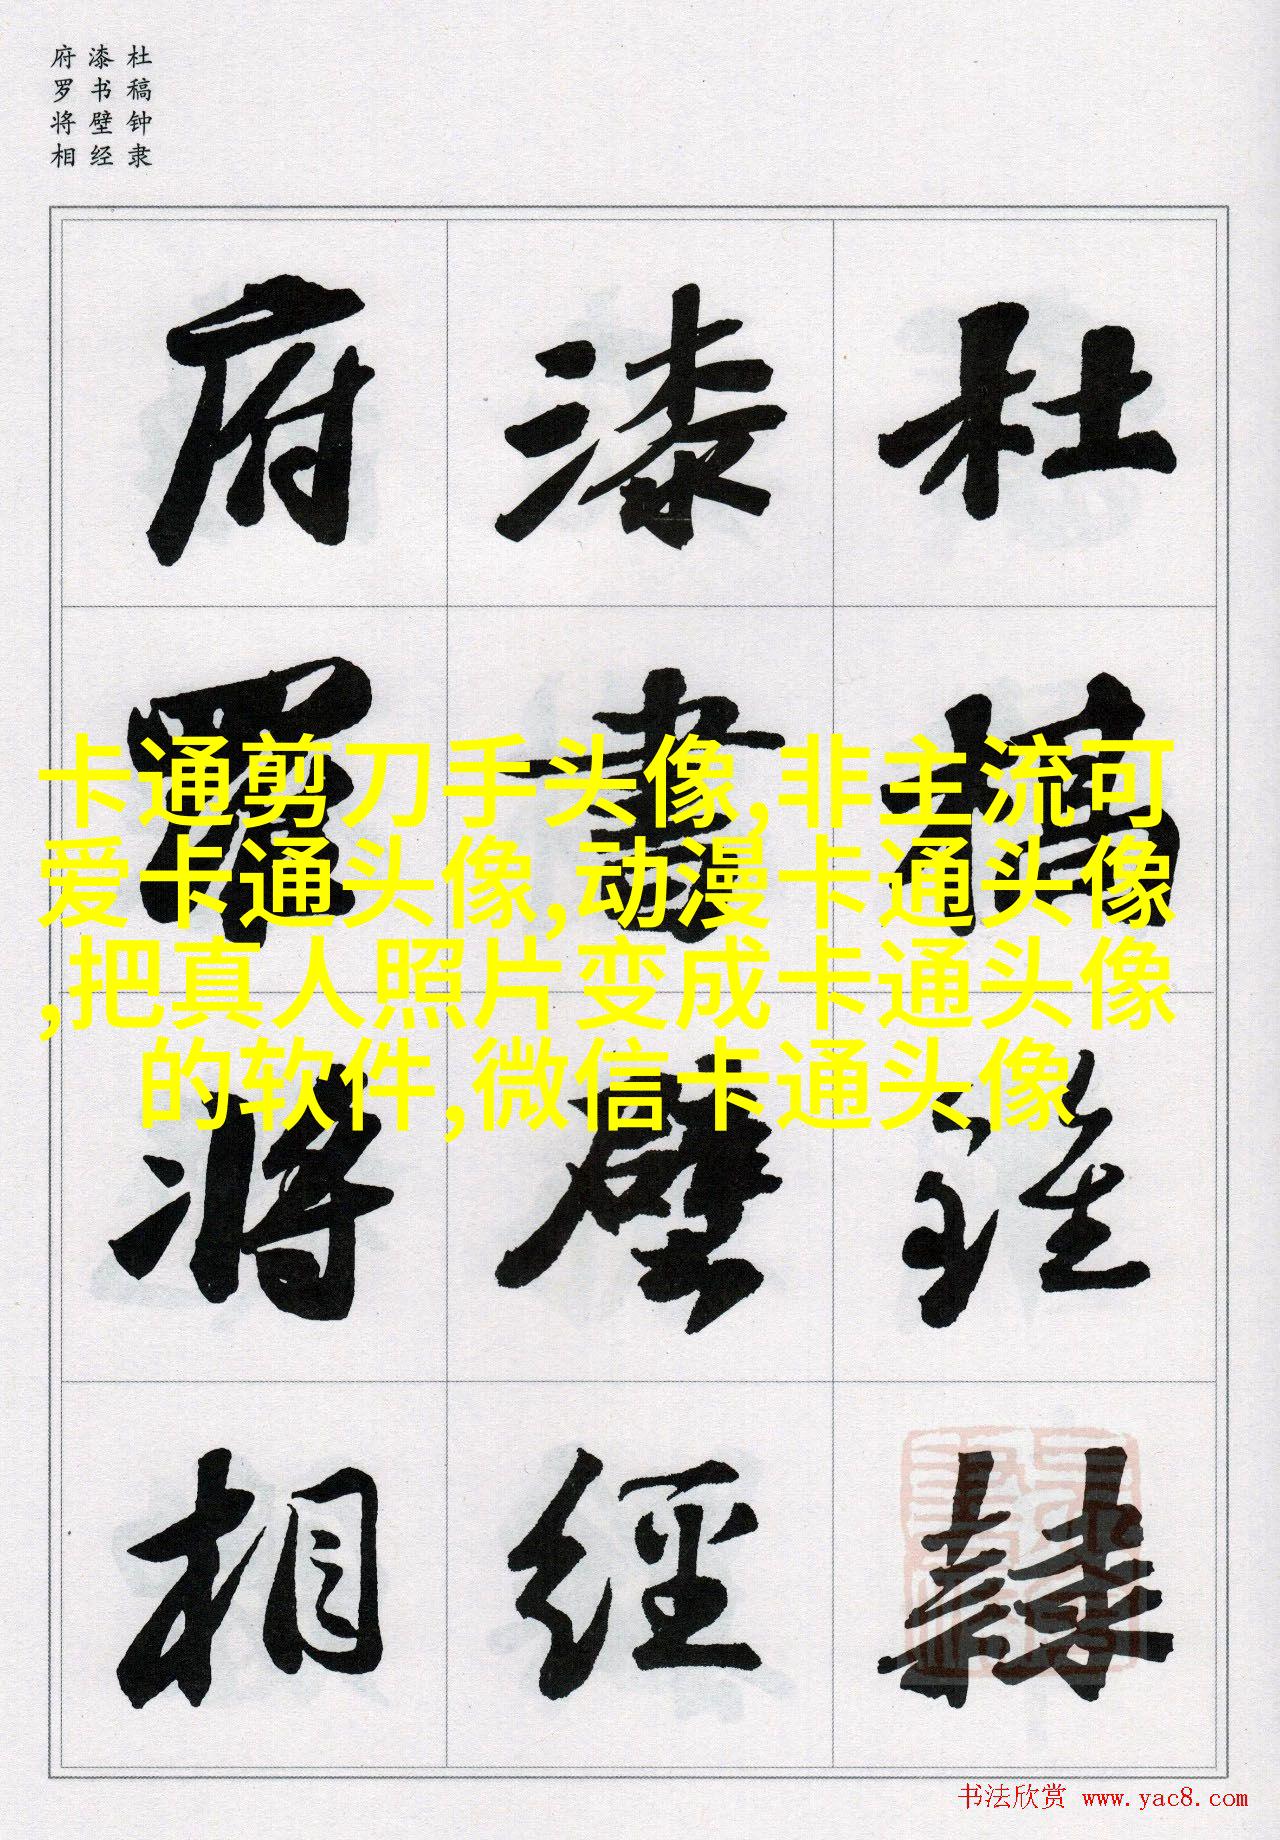 杜稿钟隶
漆书壁经
府罗将相
杜稿鍾隸
漆書壁經
府羅將相
卡通剪刀手头像,非主流可
爱卡通头像,动漫卡通头像
,把真人照片变成卡通头像
的软件,微信卡通头像
书法欣赏 www.yac8.com